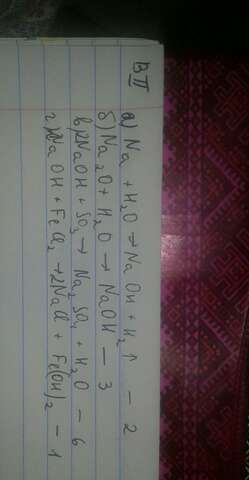 В II
а) Na + H2O → NaOH + H2↑ – 2
б) Na2O + H2O → NaOH – 3
в) 2NaOH + SO3 → Na2SO4 + H2O – 6
г) 2NaOH + FeCl2 → 2NaCl + Fe(OH)2 – 1